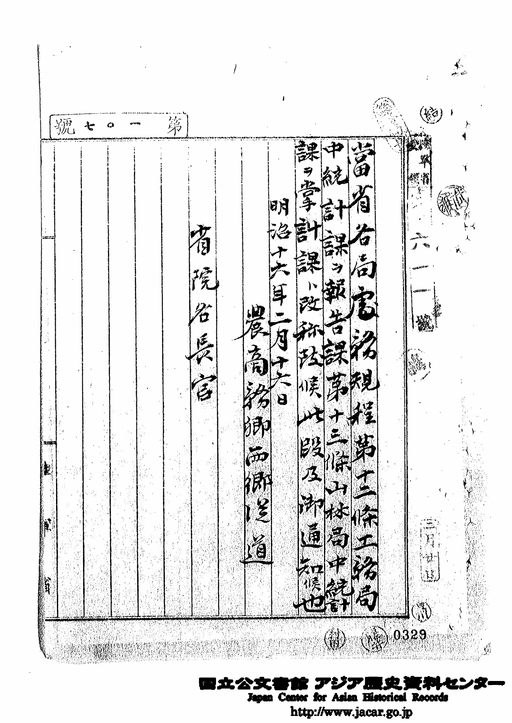 第一〇七號
六一一號
當省各局處務規程第十二條工務局
中統計課ヲ報告課第十三條山林局中統計
課ヲ掌計課ト改称致候此段及御通知候也
明治十六年二月十六日
農商務卿西郷従道
省院各長官
三月廿日
0329
国立公文書館 アジア歴史資料センター
Japan Center for Asian Historical Records
http://www.jacar.go.jp